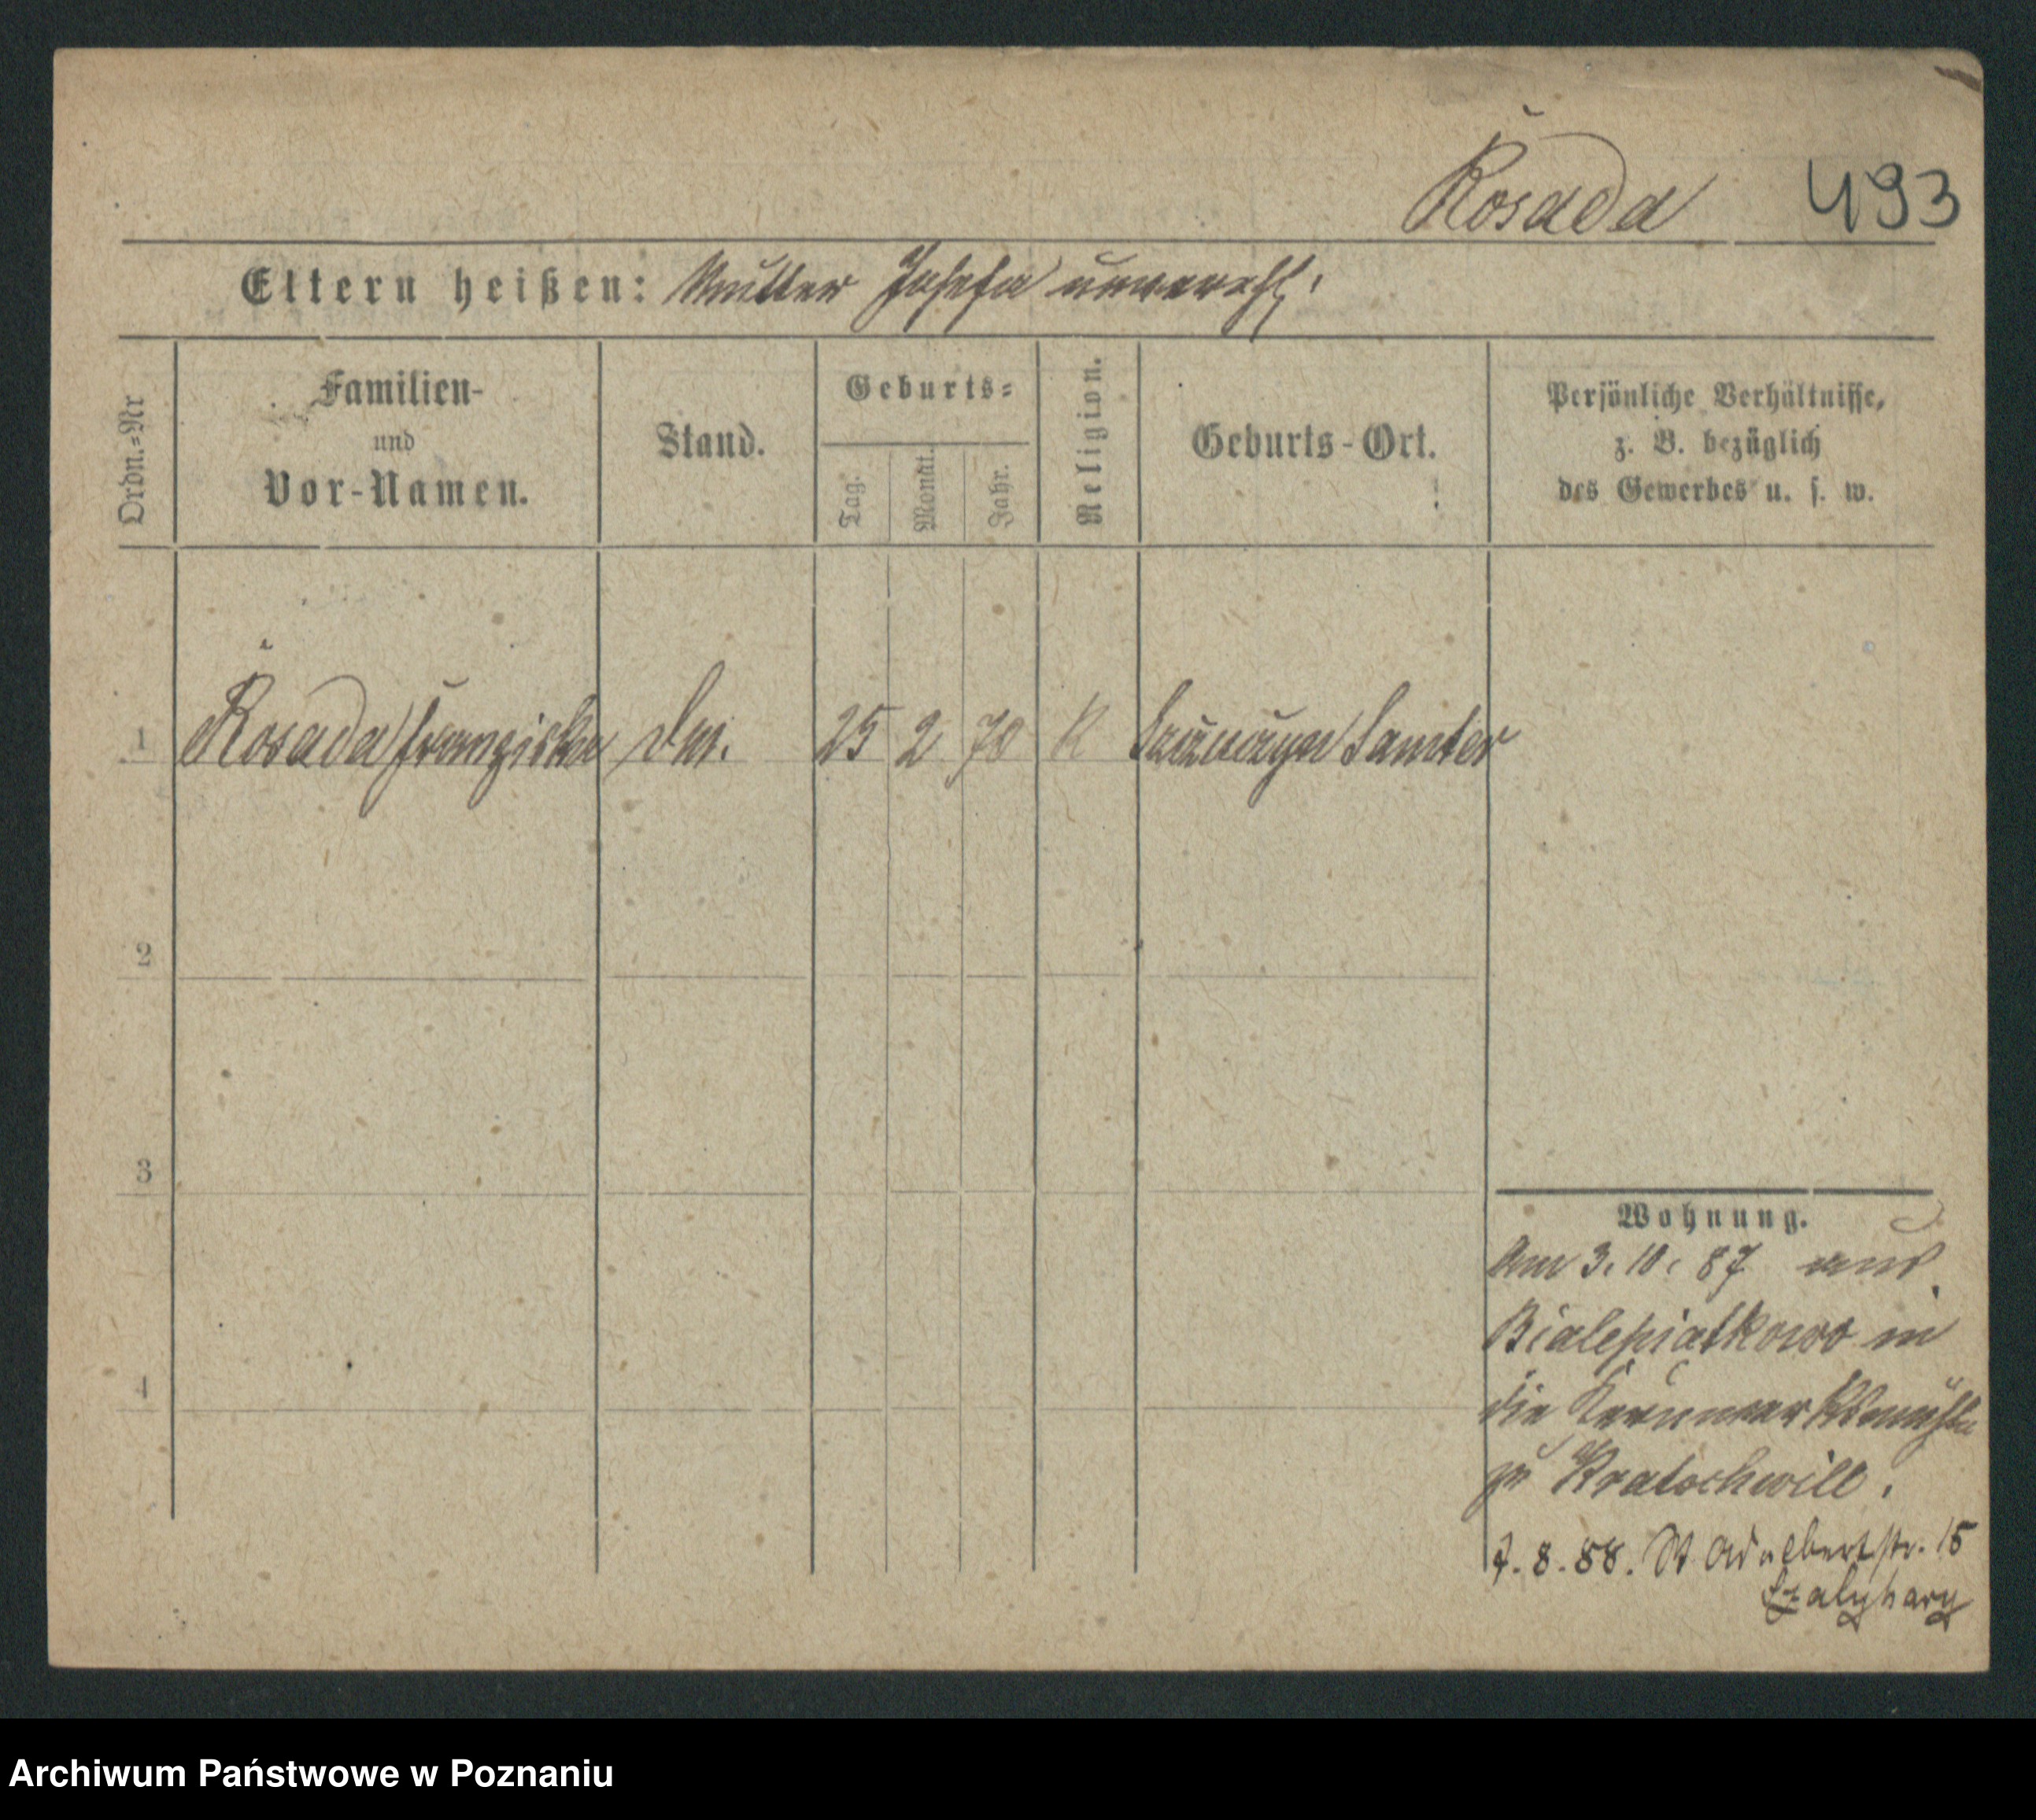 Rosada 493
Eltern heißen: Mutter Josefa unverehl.
Ordn.=Nr
Familien-
und
Vor-Namen.
Stand.
Geburts=
Tag.
Monat.
Jahr.
Religion.
Geburts-Ort.
Persönliche Verhältnisse,
z. B. bezüglich
des Gewerbes u. s. w.
1 Rosada Franziska 25 2 70 K Samter
2
3
4
Wohnung.
Am 3. 10. 87 aus
Bialepiatkowo in
die
zu Kratochwill.
7. 8. 88. St Adalbertstr. 15
Archiwum Państwowe w Poznaniu